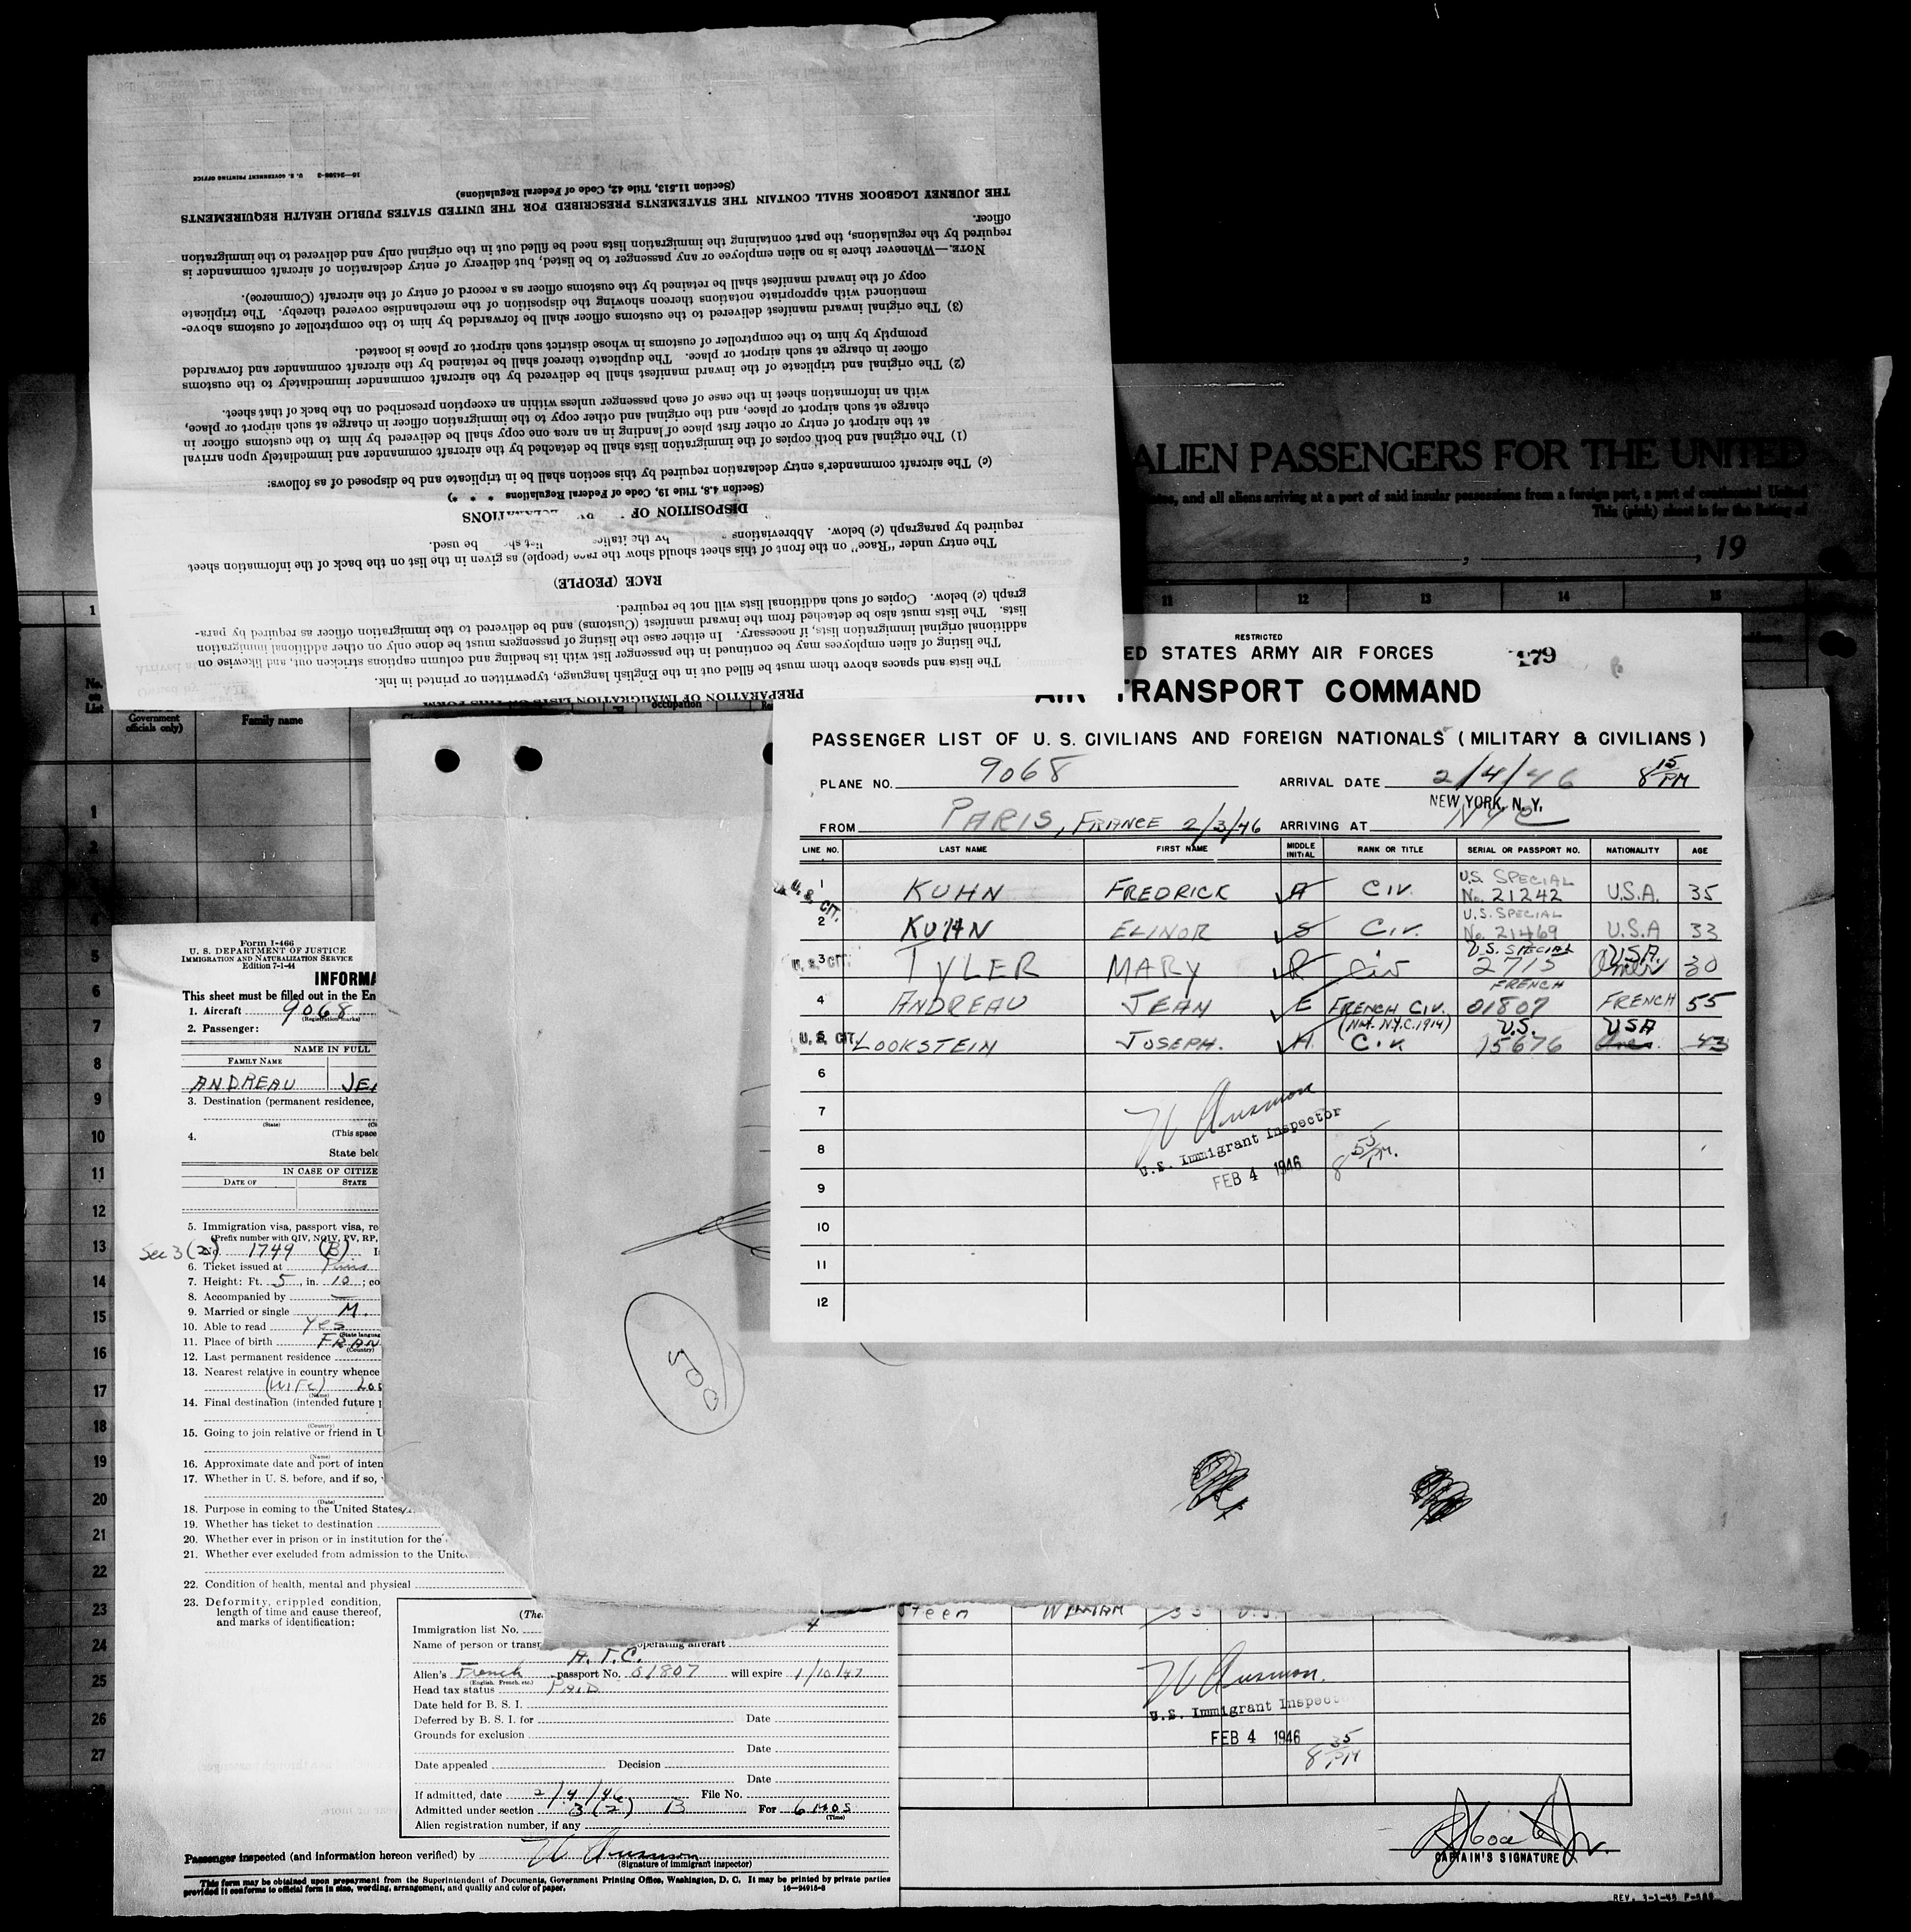 16—24598-3 U. S. GOVERNMENT PRINTING OFFICE
(Section 11.513, Title 42, Code of Federal Regulations)
THE JOURNEY LOGBOOK SHALL CONTAIN THE STATEMENTS PRESCRIBED FOR THE UNITED STATES PUBLIC HEALTH REQUIREMENTS
officer.
required by the regulations, the part containing the immigration lists need be filled out in the original only and delivered to the immigration
NOTE.—Whenever there is no alien employee or any passenger to be listed, but delivery of entry declaration of aircraft commander is
copy of the inward manifest shall be retained by the customs officer as a record of entry of the aircraft (Commerce).
mentioned with appropriate notations thereon showing the disposition of the merchandise covered thereby. The triplicate
(3) The original inward manifest delivered to the customs officer shall be forwarded by him to the comptroller of customs above-
promptly by him to the comptroller of customs in whose district such airport or place is located.
officer in charge at such airport or place. The duplicate thereof shall be retained by the aircraft commander and forwarded
(2) The original and triplicate of the inward manifest shall be delivered by the aircraft commander immediately to the customs
with an information sheet in the case of each passenger unless within an exception prescribed on the back of that sheet.
charge at such airport or place, and the original and other copy to the immigration officer in charge at such airport or place,
at the airport of entry or other first place of landing in an area one copy shall be delivered by him to the customs officer in
(1) The original and both copies of the immigration lists shall be detached by the aircraft commander and immediately upon arrival
(c) The aircraft commander's entry declaration required by this section shall be in triplicate and disposed of as follows:
(Section 4.8, Title 19, Code of Federal Regulations * * *)
DISPOSITION OF
required by paragraph (c) below. Abbreviations by the italics be used.
The entry under "Race" on the front of this sheet should show the race (people) as given in the list on the back of the information sheet
RACE (PEOPLE)
graph (c) below. Copies of such additional lists will not be required.
lists. The lists must also be detached from the inward manifest (Customs) and be delivered to the immigration officer as required by para-
additional original immigration lists, if necessary. In either case the listing of passengers must be done only on other additional immigration
The listing of alien employees may be continued in the passenger list with its heading and column captions stricken out, and likewise on
The lists and spaces above them must be filled out in the English language, typewritten or printed in ink.
PREPARATION OF IMMIGRATION LISTS ON THIS FORM
ALIEN PASSENGERS FOR THE UNITED
and all aliens arriving at a port of said insular possessions from a foreign port, a port of continental United
This (pink) sheet is for the listing of
, , 19
1 11 12 13 14 15
No. on List
Government officials only)
Family name
occupation
RESTRICTED
ED STATES ARMY AIR FORCES
179
AIR TRANSPORT COMMAND
PASSENGER LIST OF U. S. CIVILIANS AND FOREIGN NATIONALS (MILITARY & CIVILIANS)
PLANE NO. 9068 ARRIVAL DATE 2/4/46 8 15 PM
NEW YORK, N. Y.
FROM PARIS, FRANCE 2/3/46 ARRIVING AT NYC
LINE NO. LAST NAME FIRST NAME MIDDLE INITIAL RANK OR TITLE SERIAL OR PASSPORT NO. NATIONALITY AGE
U. S. CIT. 1 KUHN FREDRICK A CIV. U.S. SPECIAL No. 21242 U.S.A. 35
2 KUHN ELINOR S CIV. U.S. SPECIAL No. 21469 U.S.A 33
U. S. CIT. 3 TYLER MARY R CIV U.S. SPECIAL 2715 U.S.A. Amer 30
4 ANDREAU JEAN E FRENCH CIV. FRENCH 01807 FRENCH 55
U. S. CIT. 5 LOOKSTEIN JOSEPH. H (Nat. N.Y.C. 1914) Civ. U.S. 15676 USA 43
6
7
8
9
10
11
12
U.S. Immigrant Inspector
FEB 4 1946 8 55 PM.
1
2
3
4
5
6
7
8
9
10
11
12
13
14
15
16
17
18
19
20
21
22
23
24
25
26
27
Form I-466
U. S. DEPARTMENT OF JUSTICE
IMMIGRATION AND NATURALIZATION SERVICE
Edition 7-1-44
INFORMA
This sheet must be filled out in the En
1. Aircraft 9068
(Registration marks)
2. Passenger:
NAME IN FULL
FAMILY NAME
ANDREAU JEA
3. Destination (permanent residence,
(State)
4. (This space
State belo
IN CASE OF CITIZE
DATE OF STATE
5. Immigration visa, passport visa, re
(Prefix number with QIV, NQIV, PV, RP,
Sec 3(2) No. 1749 (B)
6. Ticket issued at Paris
7. Height: Ft. 5, in. 10; co
8. Accompanied by —
9. Married or single M.
10. Able to read Yes
(State languag
11. Place of birth FRAN
(Country)
12. Last permanent residence
13. Nearest relative in country whence
(WIFE)
(Name)
14. Final destination (intended future p
(Country)
15. Going to join relative or friend in U
(Name)
16. Approximate date and port of inten
17. Whether in U. S. before, and if so,
(Date)
18. Purpose in coming to the United States
19. Whether has ticket to destination
20. Whether ever in prison or in institution for the
21. Whether ever excluded from admission to the Unite
22. Condition of health, mental and physical
23. Deformity, crippled condition,
length of time and cause thereof,
and marks of identification:
(The
Immigration list No. 4
Name of person or transp operating aircraft
A.T.C.
Alien's French passport No. 01807 will expire 1/10/47
(English, French, etc.)
Head tax status PAID
Date held for B. S. I.
Deferred by B. S. I. for Date
Grounds for exclusion
Date
Date appealed Decision
Date
If admitted, date 2/4/46 File No.
Admitted under section 3(2) B For 6 MOS
(Time)
Alien registration number, if any
Passenger inspected (and information hereon verified) by
(Signature of immigrant inspector)
This form may be obtained upon prepayment from the Superintendent of Documents, Government Printing Office, Washington, D. C. It may be printed by private parties
provided it conforms to official form in size, wording, arrangement, and quality and color of paper. 16—24915-3
steen WILLIAM 33 U.S.
U.S. Immigrant Inspect
FEB 4 1946 8 35 PM
CAPTAIN'S SIGNATURE